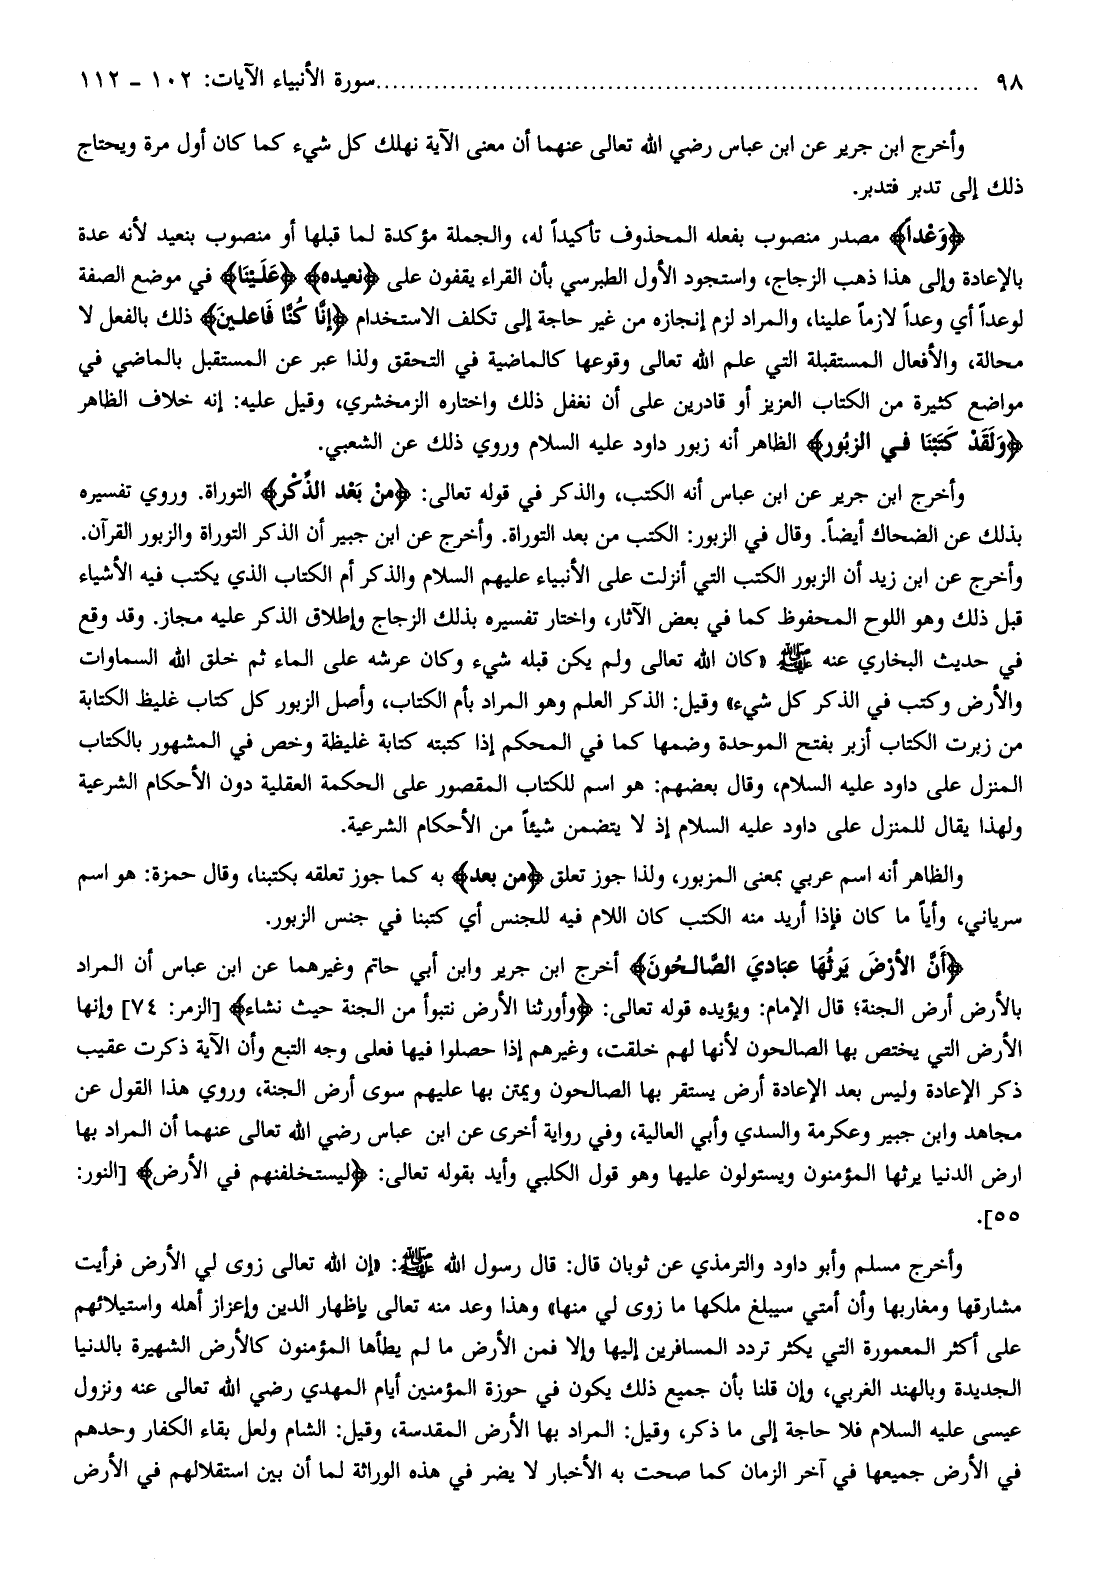 ٩٨ ........................................................................ سورة الأنبياء الآيات: ١٠٢ ـ ١١٢
وأخرج ابن جرير عن ابن عباس رضي الله تعالى عنهما أن معنى الآية نهلك كل شيء كما كان أول مرة ويحتاج
ذلك إلى تدبر فتدبر.
﴿وَعْداً﴾ مصدر منصوب بفعله المحذوف تأكيداً له، والجملة مؤكدة لما قبلها أو منصوب بنعيد لأنه عدة
بالإعادة وإلى هذا ذهب الزجاج، واستجود الأول الطبرسي بأن القراء يقفون على ﴿نعيده﴾ ﴿عَلَيْنَا﴾ في موضع الصفة
لوعداً أي وعداً لازماً علينا، والمراد لزم إنجازه من غير حاجة إلى تكلف الاستخدام ﴿إِنَّا كُنَّا فَاعلينَ﴾ ذلك بالفعل لا
محالة، والأفعال المستقبلة التي علم الله تعالى وقوعها كالماضية في التحقق ولذا عبر عن المستقبل بالماضي في
مواضع كثيرة من الكتاب العزيز أو قادرين على أن نفعل ذلك واختاره الزمخشري، وقيل عليه: إنه خلاف الظاهر
﴿وَلَقَدْ كَتَبْنَا في الزبُور﴾ الظاهر أنه زبور داود عليه السلام وروي ذلك عن الشعبي.
وأخرج ابن جرير عن ابن عباس أنه الكتب، والذكر في قوله تعالى: ﴿منْ بَعْد الذِّكْر﴾ التوراة. وروي تفسيره
بذلك عن الضحاك أيضاً. وقال في الزبور: الكتب من بعد التوراة. وأخرج عن ابن جبير أن الذكر التوراة والزبور القرآن.
وأخرج عن ابن زيد أن الزبور الكتب التي أنزلت على الأنبياء عليهم السلام والذكر أم الكتاب الذي يكتب فيه الأشياء
قبل ذلك وهو اللوح المحفوظ كما في بعض الآثار، واختار تفسيره بذلك الزجاج وإطلاق الذكر عليه مجاز. وقد وقع
في حديث البخاري عنه ﷺ «كان الله تعالى ولم يكن قبله شيء وكان عرشه على الماء ثم خلق الله السماوات
والأرض وكتب في الذكر كل شيء» وقيل: الذكر العلم وهو المراد بأم الكتاب، وأصل الزبور كل كتاب غليظ الكتابة
من زبرت الكتاب أزبر بفتح الموحدة وضمها كما في المحكم إذا كتبته كتابة غليظة وخص في المشهور بالكتاب
المنزل على داود عليه السلام، وقال بعضهم: هو اسم للكتاب المقصور على الحكمة العقلية دون الأحكام الشرعية
ولهذا يقال للمنزل على داود عليه السلام إذ لا يتضمن شيئاً من الأحكام الشرعية.
والظاهر أنه اسم عربي بمعنى المزبور، ولذا جوز تعلق ﴿من بعد﴾ به كما جوز تعلقه بكتبنا، وقال حمزة: هو اسم
سرياني، وأياً ما كان فإذا أريد منه الكتب كان اللام فيه للجنس أي كتبنا في جنس الزبور.
﴿أَنَّ الأَرْضَ يَرثُهَا عبَاديَ الصَّالحُونَ﴾ أخرج ابن جرير وابن أبي حاتم وغيرهما عن ابن عباس أن المراد
بالأرض أرض الجنة؛ قال الإمام: ويؤيده قوله تعالى: ﴿وأورثنا الأرض نتبوأ من الجنة حيث نشاء﴾ [الزمر: ٧٤] وإنها
الأرض التي يختص بها الصالحون لأنها لهم خلقت، وغيرهم إذا حصلوا فيها فعلى وجه التبع وأن الآية ذكرت عقيب
ذكر الإعادة وليس بعد الإعادة أرض يستقر بها الصالحون ويمتن بها عليهم سوى أرض الجنة، وروي هذا القول عن
مجاهد وابن جبير وعكرمة والسدي وأبي العالية، وفي رواية أخرى عن ابن عباس رضي الله تعالى عنهما أن المراد بها
ارض الدنيا يرثها المؤمنون ويستولون عليها وهو قول الكلبي وأيد بقوله تعالى: ﴿ليستخلفنهم في الأرض﴾ [النور:
٥٥].
وأخرج مسلم وأبو داود والترمذي عن ثوبان قال: قال رسول الله ﷺ: «إن الله تعالى زوى لي الأرض فرأيت
مشارقها ومغاربها وأن أمتي سيبلغ ملكها ما زوى لي منها» وهذا وعد منه تعالى بإظهار الدين وإعزاز أهله واستيلائهم
على أكثر المعمورة التي يكثر تردد المسافرين إليها وإلا فمن الأرض ما لم يطأها المؤمنون كالأرض الشهيرة بالدنيا
الجديدة وبالهند الغربي، وإن قلنا بأن جميع ذلك يكون في حوزة المؤمنين أيام المهدي رضي الله تعالى عنه ونزول
عيسى عليه السلام فلا حاجة إلى ما ذكر، وقيل: المراد بها الأرض المقدسة، وقيل: الشام ولعل بقاء الكفار وحدهم
في الأرض جميعها في آخر الزمان كما صحت به الأخبار لا يضر في هذه الوراثة لما أن بين استقلالهم في الأرض